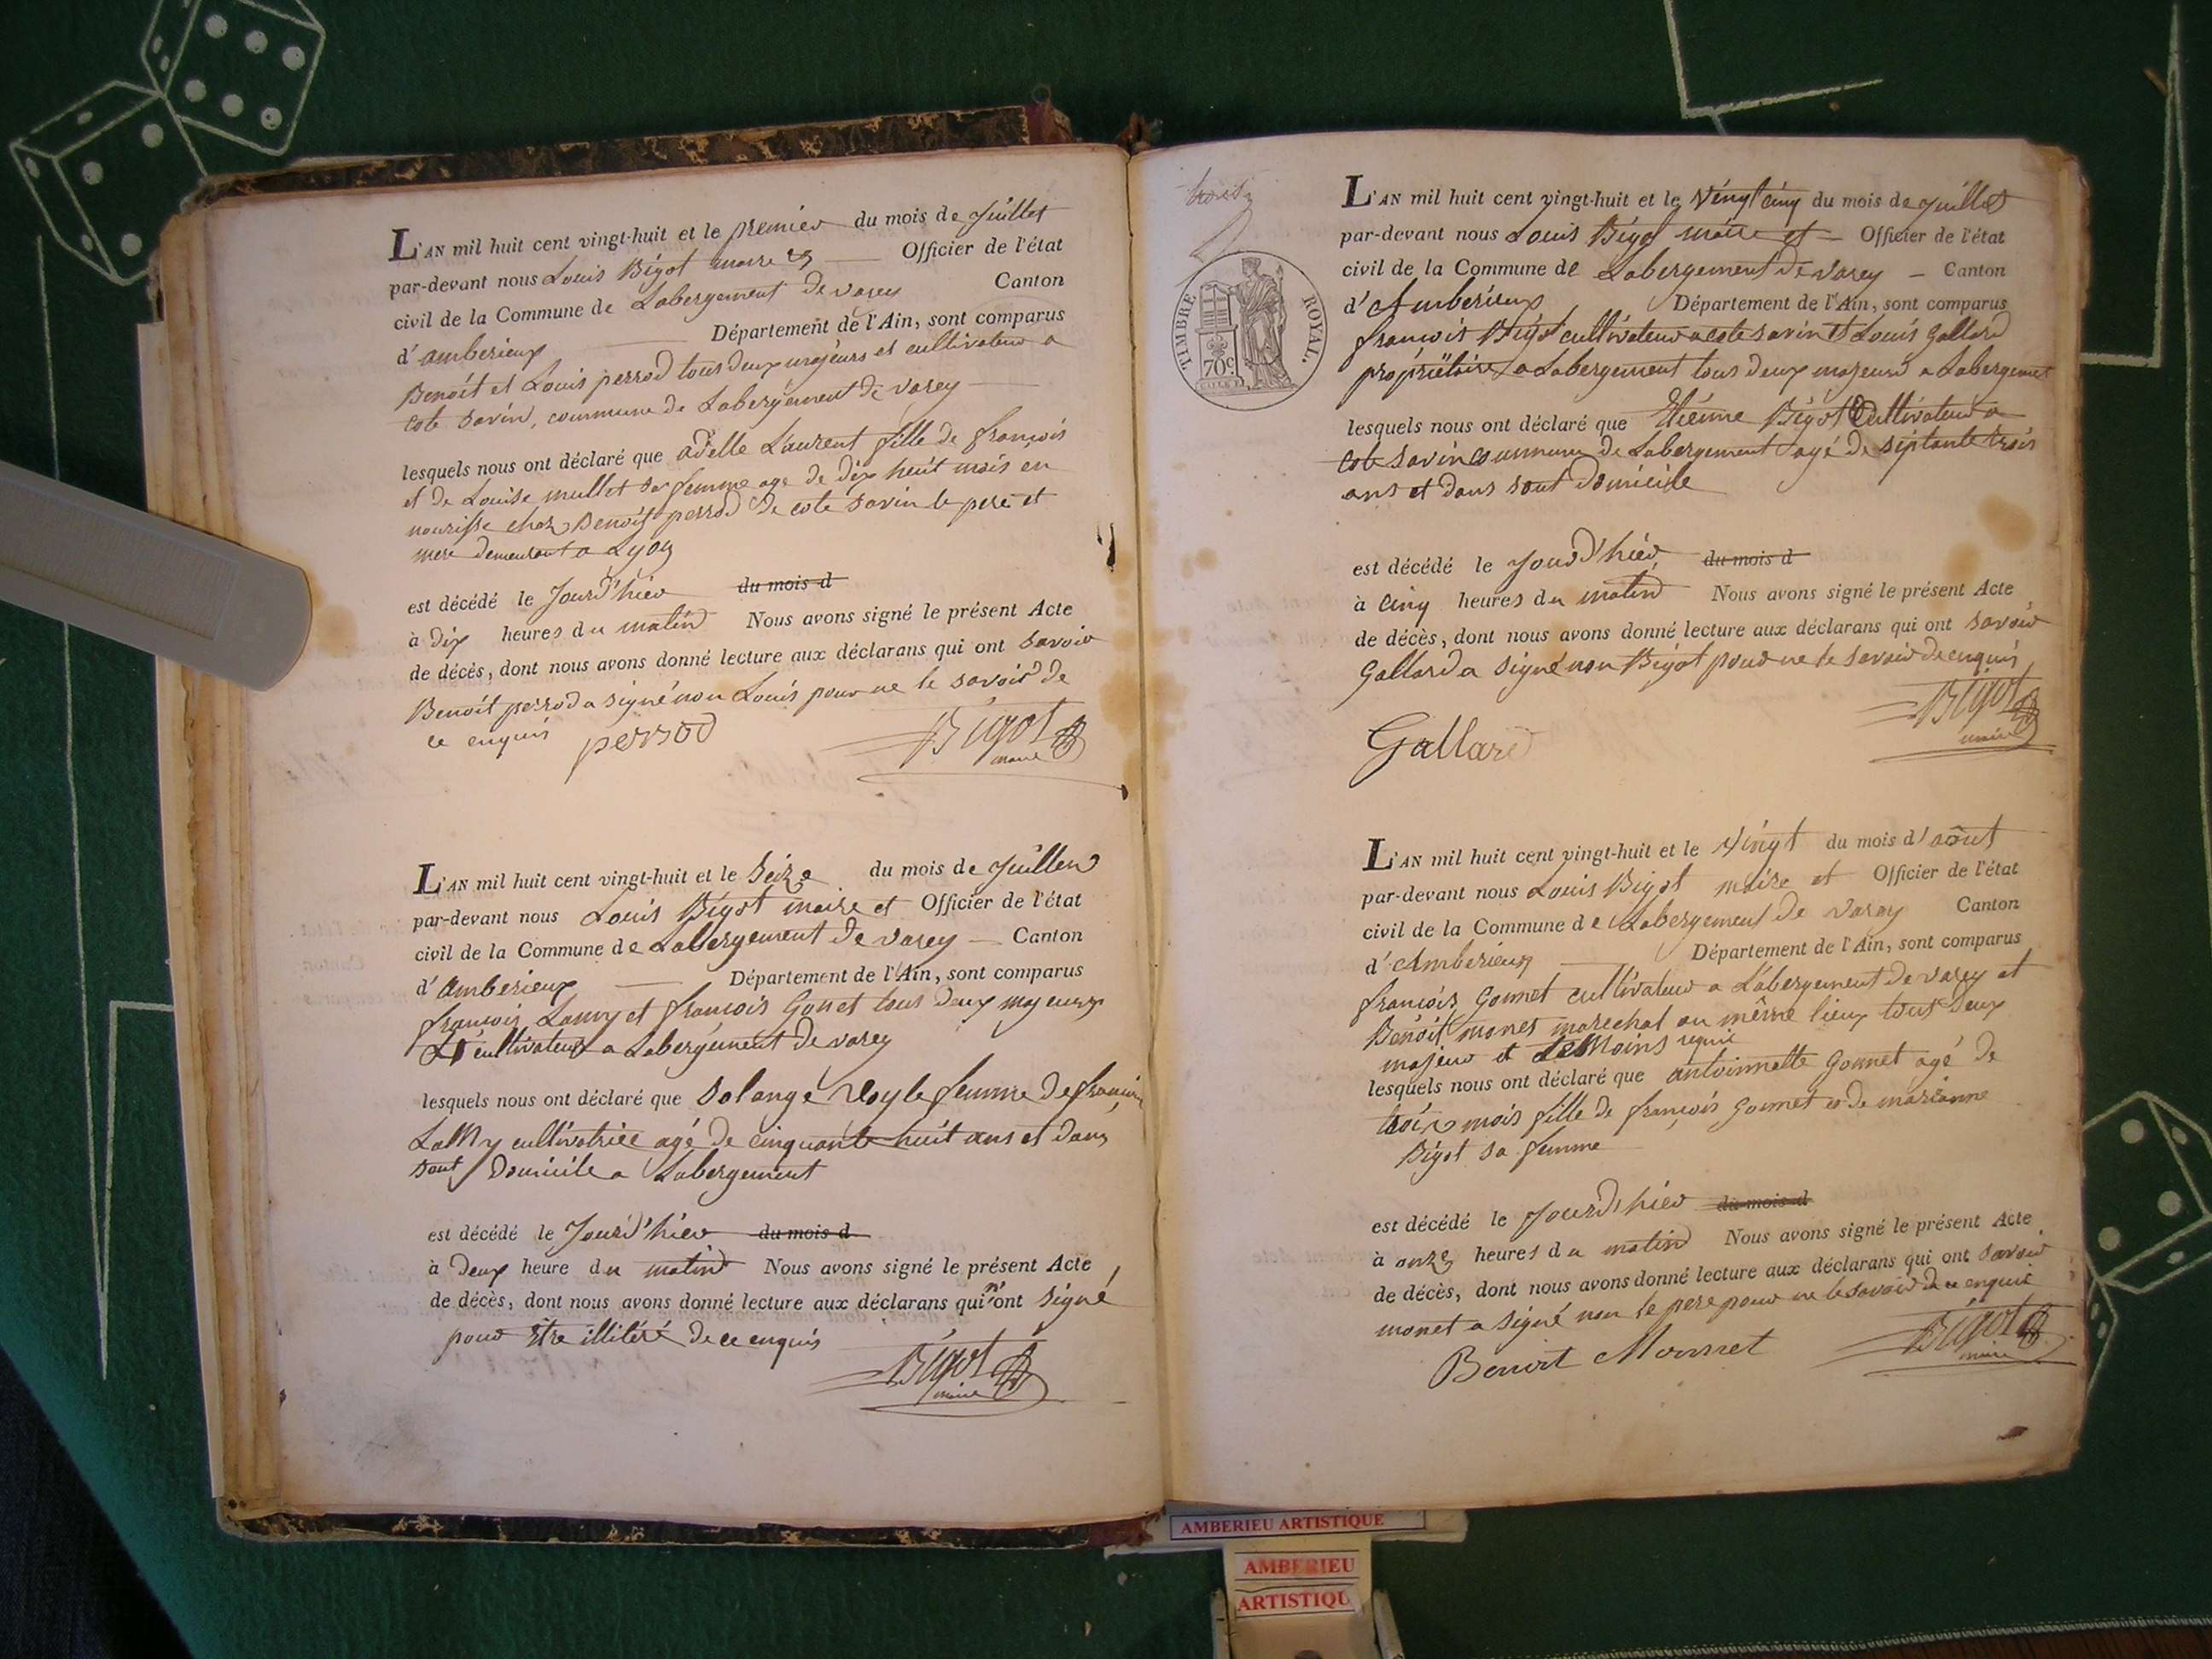 L'AN mil huit cent vingt-huit et le premier du mois de Juillet
par-devant nous Louis Bigot maire et Officier de l'état
civil de la Commune de Labergement de varey Canton
d'amberieux Département de l'Ain, sont comparus
Benoit et Louis perrod tous deux majeurs et cultivateur a
cote savin, commune de Labergement de varey
lesquels nous ont déclaré que adelle Laurent fille de françois
et de Louise mullet sa femme age de dix heuit mois en
nourisse chez Benoit perrod de cote savin le pere et
mere demeurant a Lyon
est décédé le Jourd'hier du mois d
à dix heures du matin Nous avons signé le présent Acte
de décès, dont nous avons donné lecture aux déclarans qui ont savoir
Benoit perrod a signé non Louis pour ne le savoir de
ce enquis perrod Bigot
maire
L'AN mil huit cent vingt-huit et le Seize du mois de Juillet
par-devant nous Louis Bigot maire et Officier de l'état
civil de la Commune de Labergement de varey Canton
d'Amberieux Département de l'Ain, sont comparus
françois Lamy et françois Gonet tous deux majeurs
cultivateur a Labergement de varey
lesquels nous ont déclaré que Solange femme de françois
Lamy cultivatrice agé de cinquante huit ans et dans
sont Domicile a Labergement
est décédé le Jourd'hier du mois d
à deux heure du matin Nous avons signé le présent Acte
de décès, dont nous avons donné lecture aux déclarans qui n'ont signé
pour être illitéré de ce enquis
Bigot
maire
TIMBRE ROYAL.
70c
L'AN mil huit cent vingt-huit et le Vingt cinq du mois de Juillet
par-devant nous Louis Bigot maire et Officier de l'état
civil de la Commune de Labergement de varey Canton
d'Amberieux Département de l'Ain, sont comparus
françois Bigot cultivateur a cote savin et Louis Gallard
propriétaire a Labergement tous deux majeurs a Labergement
lesquels nous ont déclaré que Etienne Bigot Cultivateur a
cote savin commune de Labergement agé de septante trois
ans et dans sont domicile
est décédé le Jourd'hier du mois d
à cinq heures du matin Nous avons signé le présent Acte
de décès, dont nous avons donné lecture aux déclarans qui ont savoir
Gallard a signé non Bigot pour ne le savoir de enquis
Bigot
maire
Gallard
L'AN mil huit cent vingt-huit et le vingt du mois d'août
par-devant nous Louis Bigot maire et Officier de l'état
civil de la Commune de Labergement de varey Canton
d'Amberieux Département de l'Ain, sont comparus
françois Gonnet cultivateur a Labergement de varey et
Benoit monet marechal au même lieux tous deux
majeur et temoins requis
lesquels nous ont déclaré que antoinnette Gonnet agé de
trois mois fille de françois Gonnet et de marianne
Bigot sa femme
est décédé le Jourd'hier du mois d
à onze heures du matin Nous avons signé le présent Acte
de décès, dont nous avons donné lecture aux déclarans qui ont savoir
monet a signé non le pere pour ne le savoir de ce enquis
Benoit Monnet Bigot
maire
AMBERIEU ARTISTIQUE
AMBERIEU
ARTISTIQU